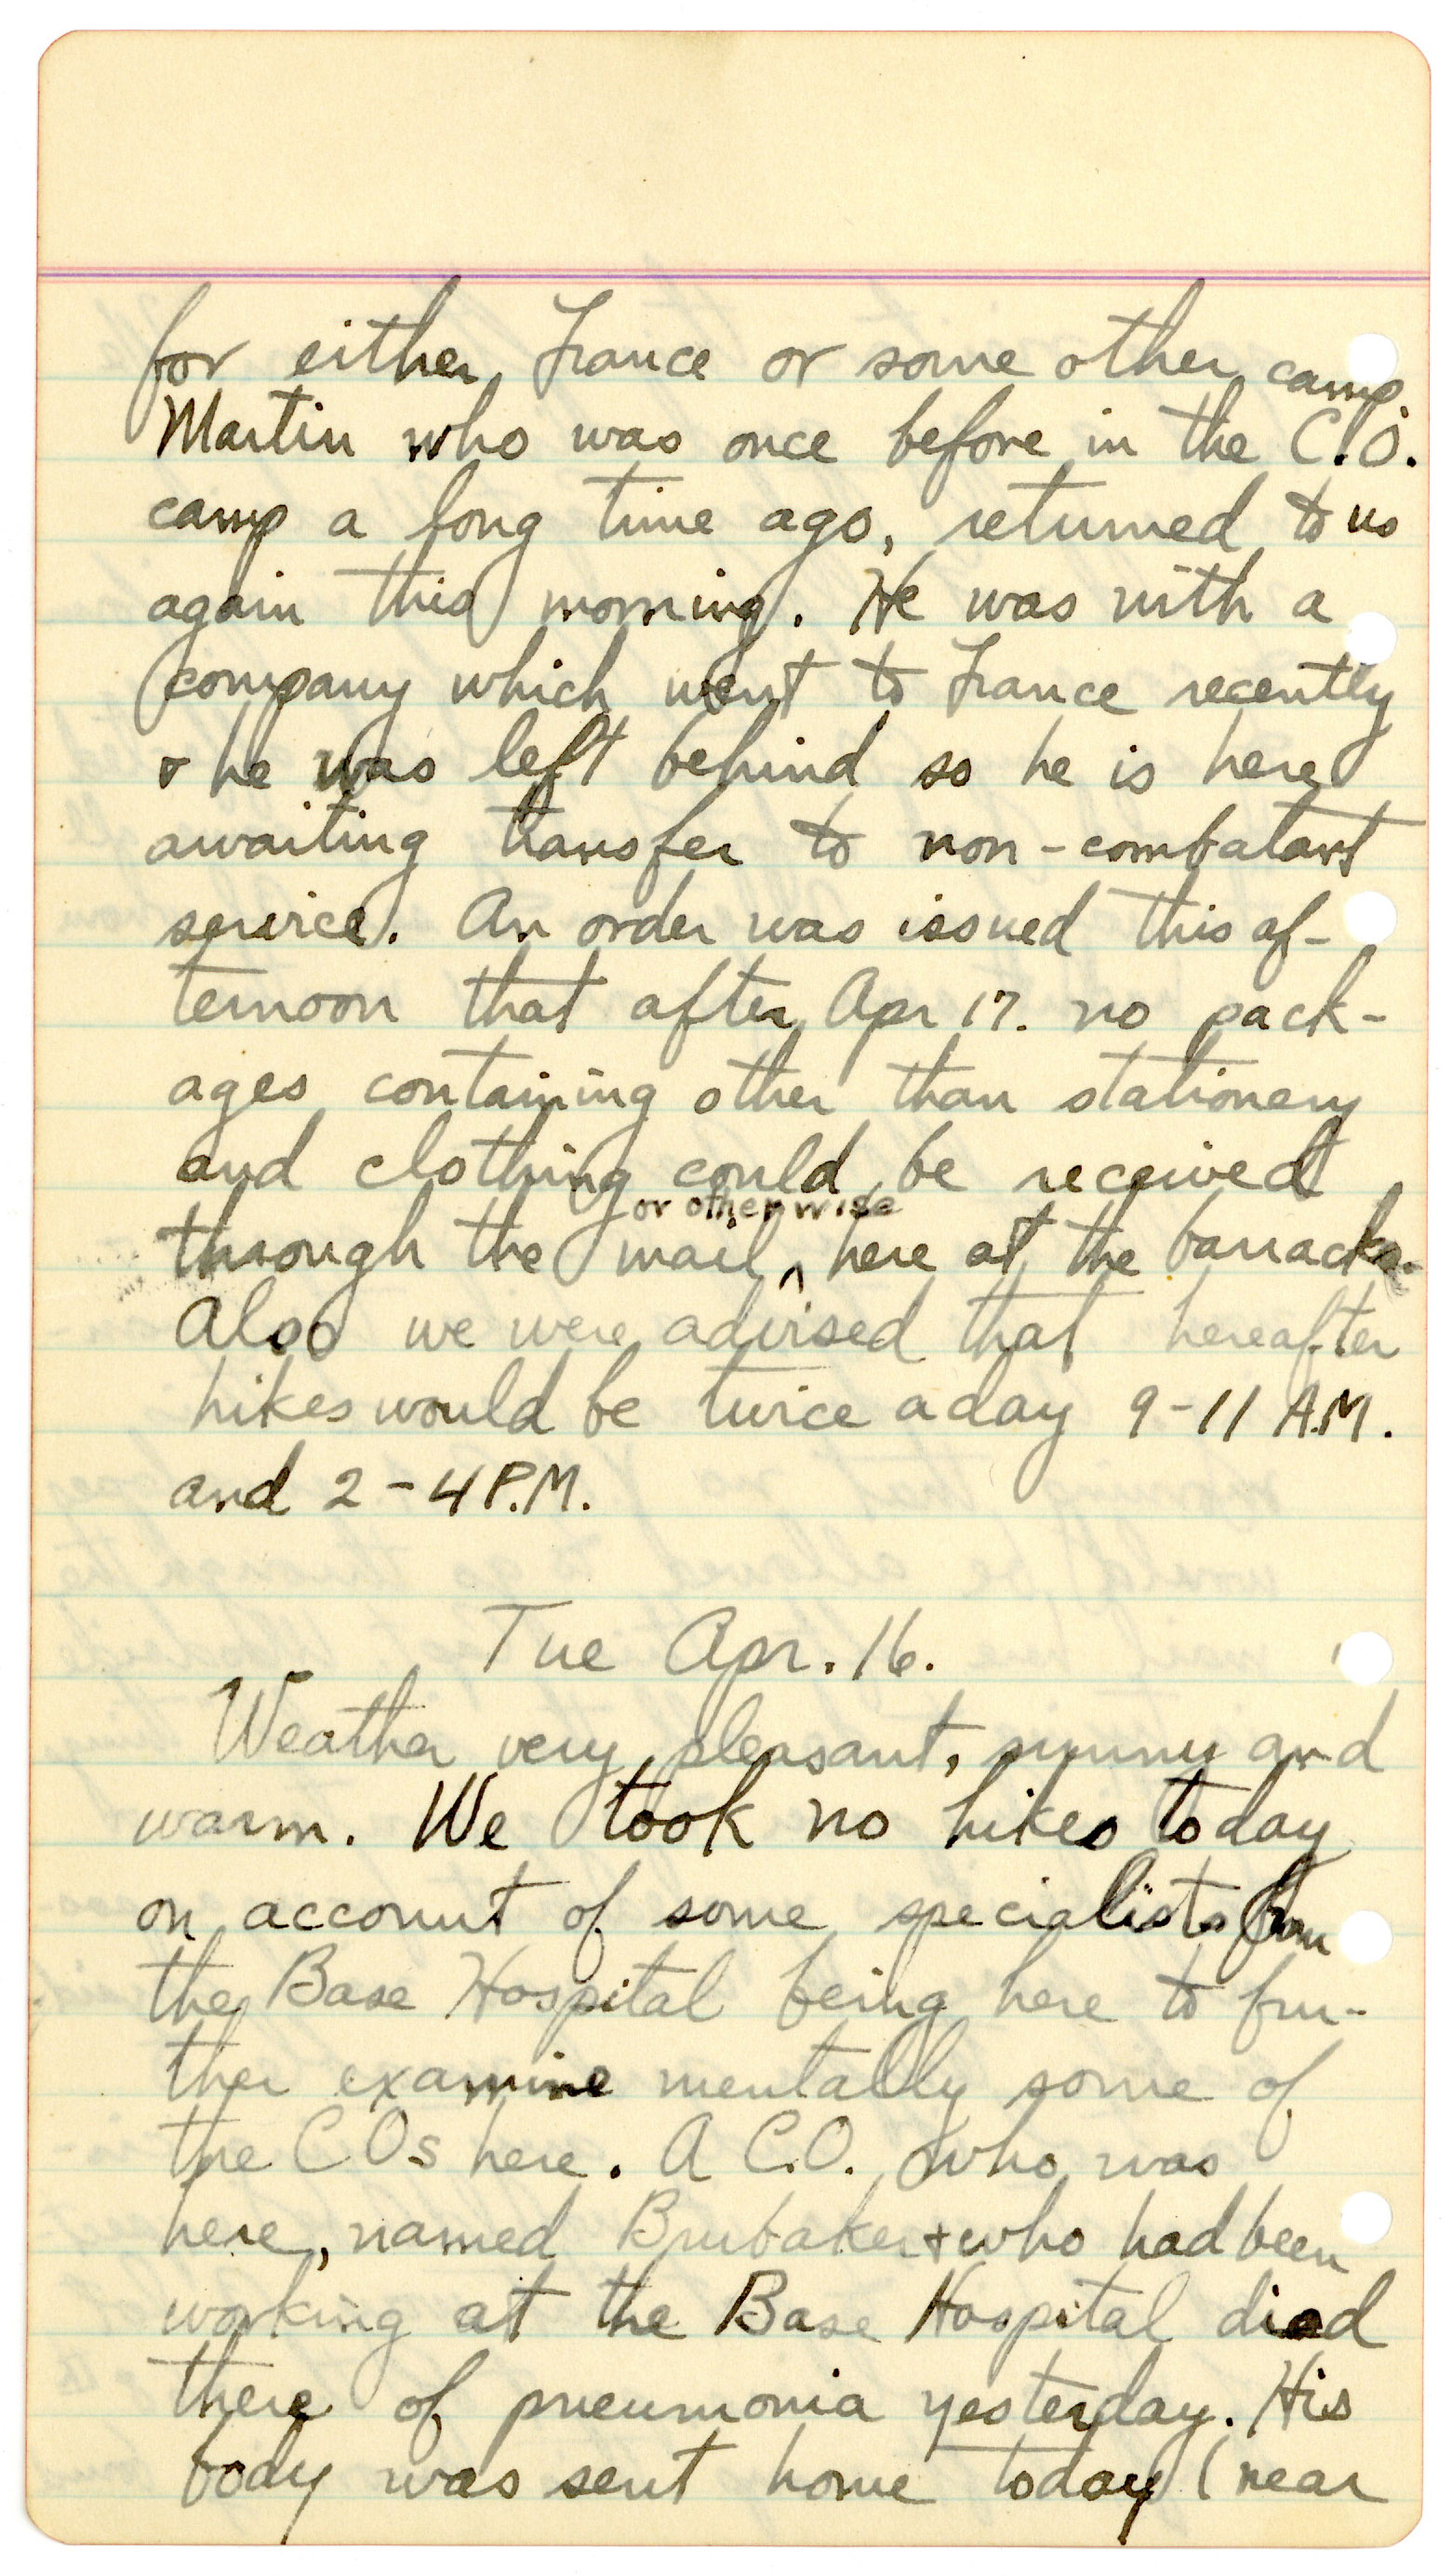 for either France or some other camp.
Martin who was once before in the C.O.
camp a long time ago, returned to us
again this morning. He was with a
company which went to France recently
& he was left behind so he is here
awaiting transfer to non-combatant
service. An order was issued this af-
ternoon that after Apr 17. no pack-
ages containing other than stationery
and clothing could be received
or otherwise
through the mail ^ here at the barracks.
Also we were advised that hereafter
hikes would be twice a day 9-11 A.M.
and 2-4 P.M.
Tue Apr. 16.
Weather very pleasant, sunny and
warm. We took no hikes today
on account of some specialists from
the Base Hospital being here to fur-
ther examine mentally some of
the COs here. A C.O. who was
here, named Brubaker + who had been
working at the Base Hospital died
there of pneumonia yesterday. His
body was sent home today (near